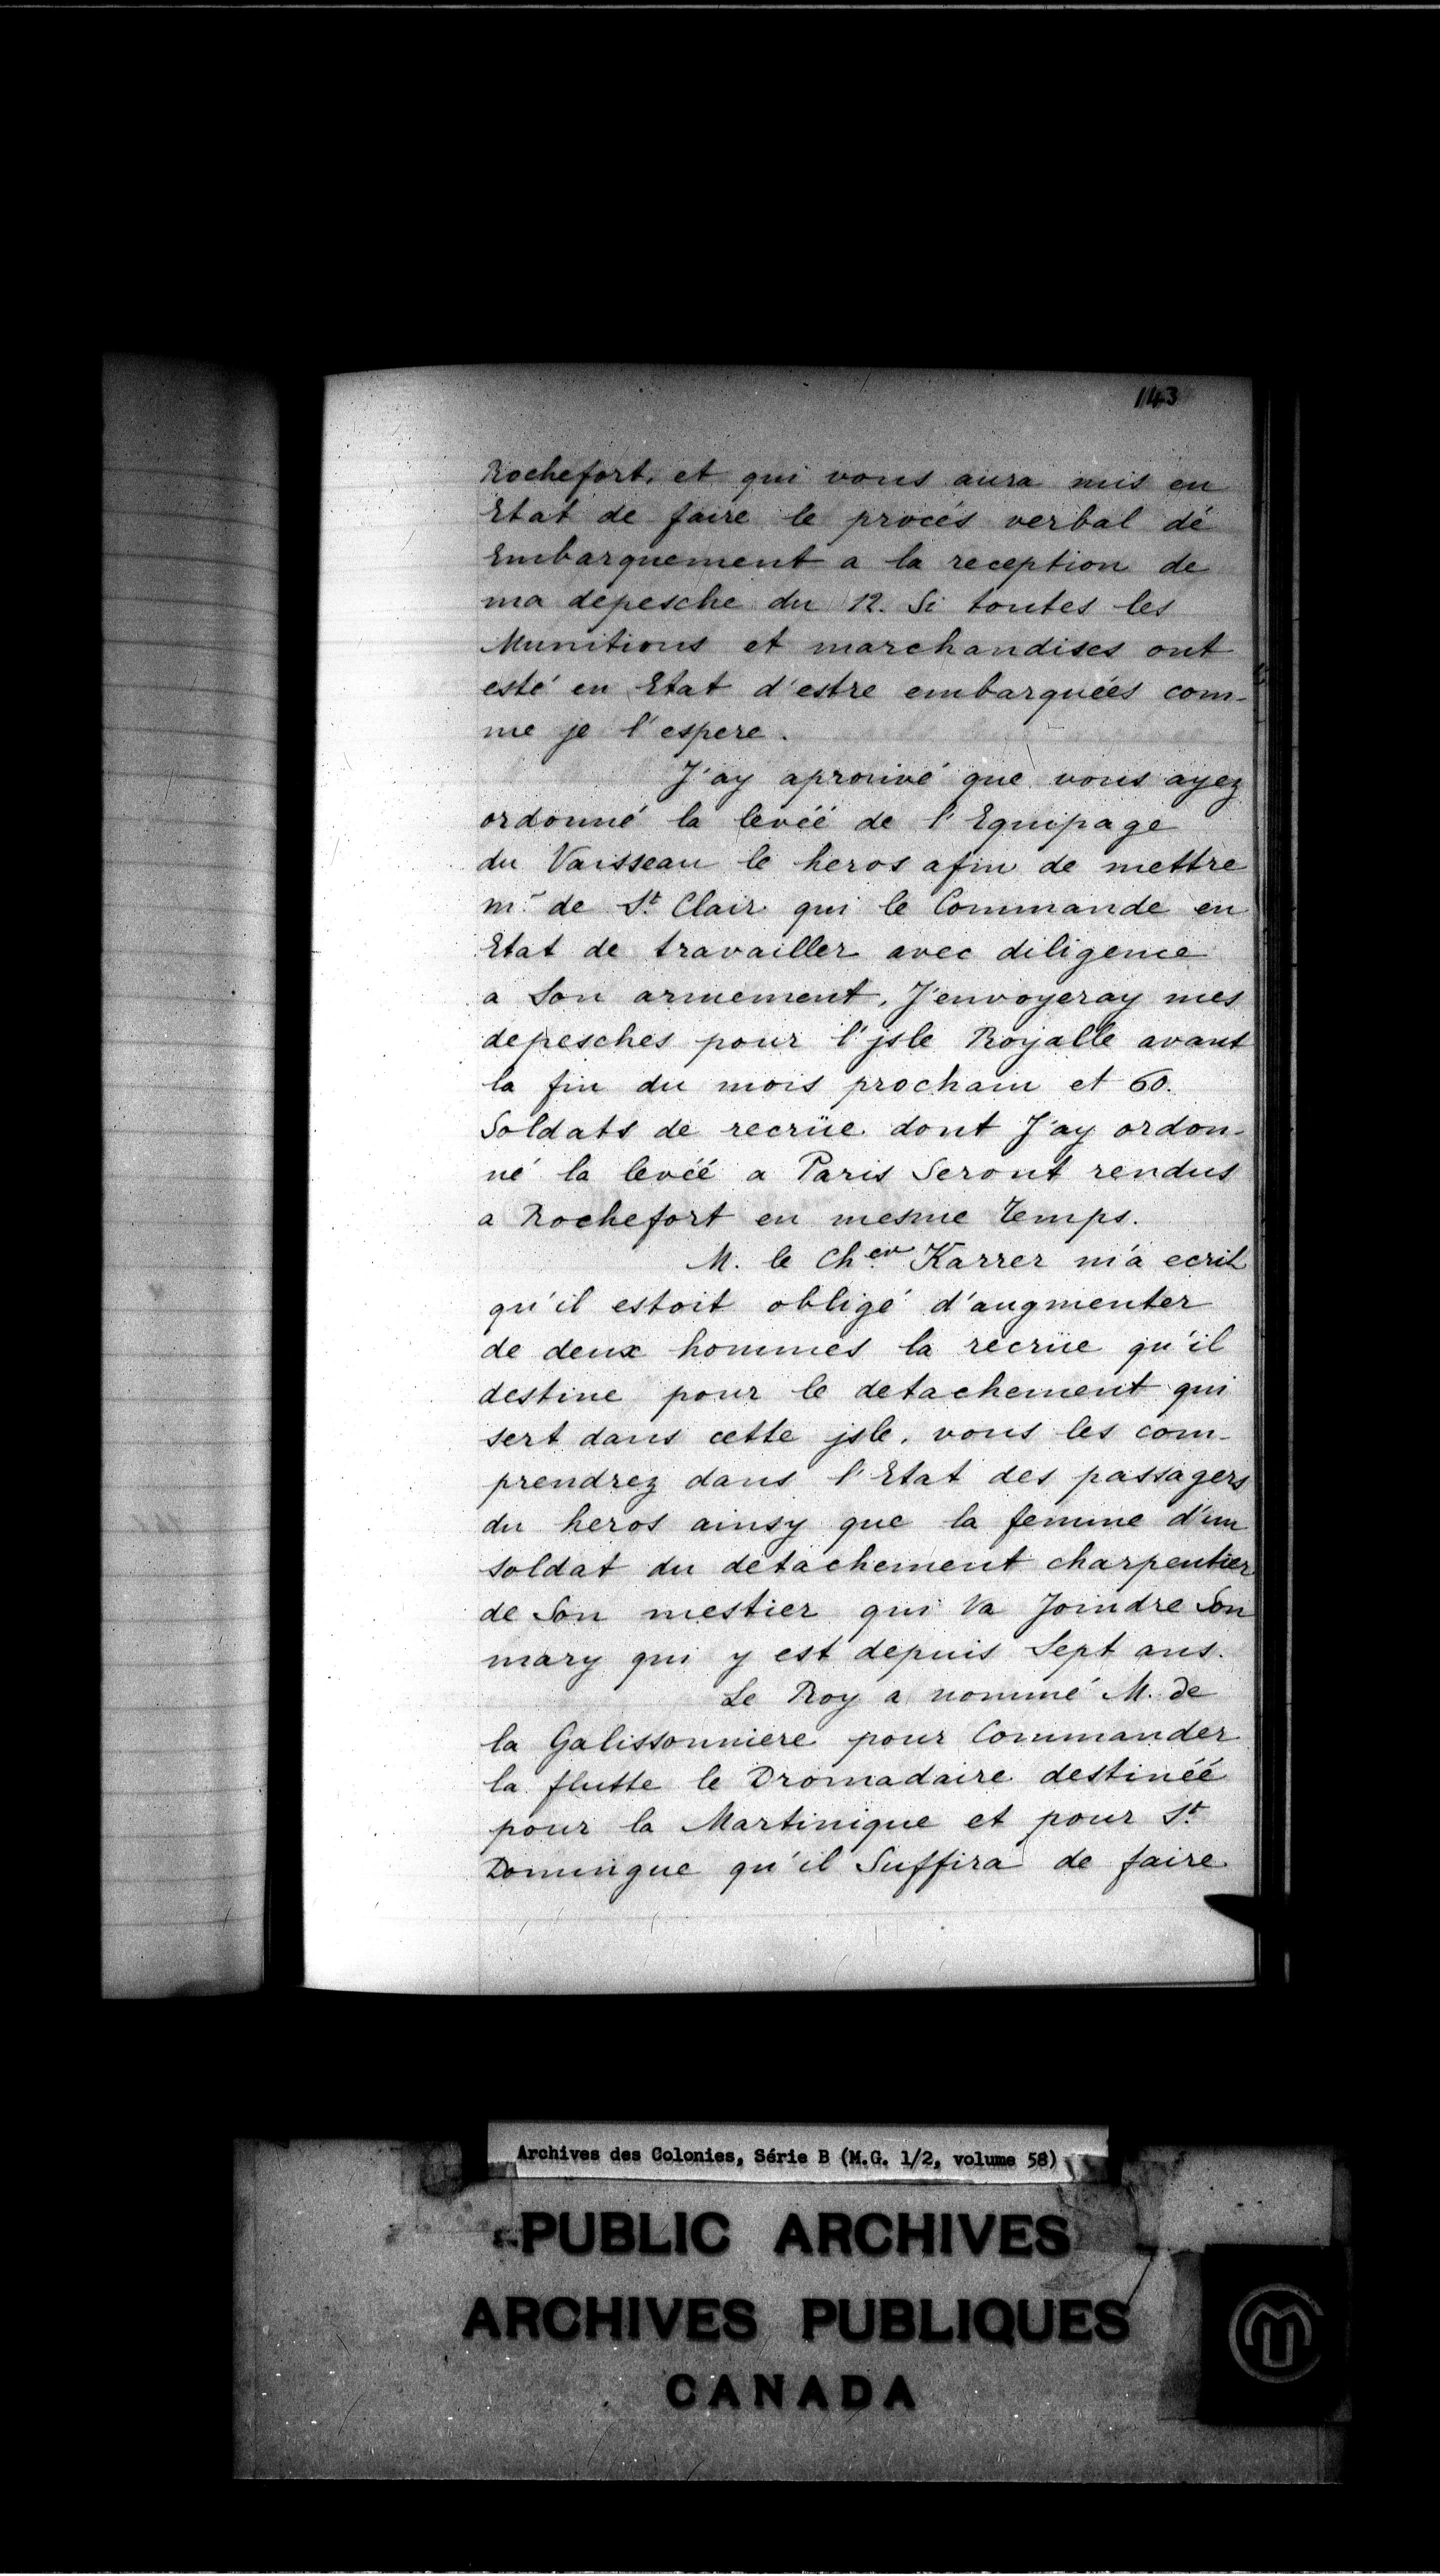 143
Rochefort, et qui vous aura mis en
Etat de faire le procés verbal de
Embarquement a la reception de
ma depesche du 12. Si toutes les
Munitions et marchandises ont
esté en Etat d'estre embarquées com-
me je l'espere.
J'ay aprouvé que vous ayez
ordonné la levéé de l'Equipage
du Vaisseau le heros afin de mettre
mr. de St. Clair qui le Commande en
Etat de travailler avec diligence
a Son armement, J'envoyeray mes
depesches pour l'jsle Royalle avant
la fin du mois prochain et 60.
Soldats de recrüe dont J'ay ordon-
né la levéé a Paris Seront rendus
a Rochefort en mesme temps.
M. le Cher. Karrer m'a ecrit
qu'il estoit obligé d'augmenter
de deux hommes la recrüe qu'il
destine pour le detachement qui
sert dans cette jsle, vous les com-
prendrez dans l'Etat des passagers
du heros ainsy que la femme d'un
soldat du detachement charpentier
de Son mestier qui Va Joindre Son
mary qui y est depuis Sept ans.
Le Roy a nommé M. de
la Galissonniere pour Commander
la flutte le Dromadaire destinéé
pour la Martinique et pour St.
Domingue qu'il Suffira de faire
Archives des Colonies, Série B (M.G. 1/2, volume 58)
PUBLIC ARCHIVES
ARCHIVES PUBLIQUES
CANADA